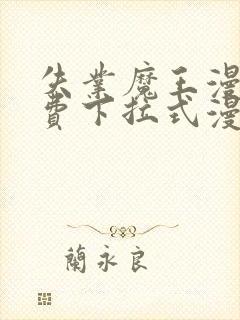 失業魔王漫
費下拉式漫
蘭永良